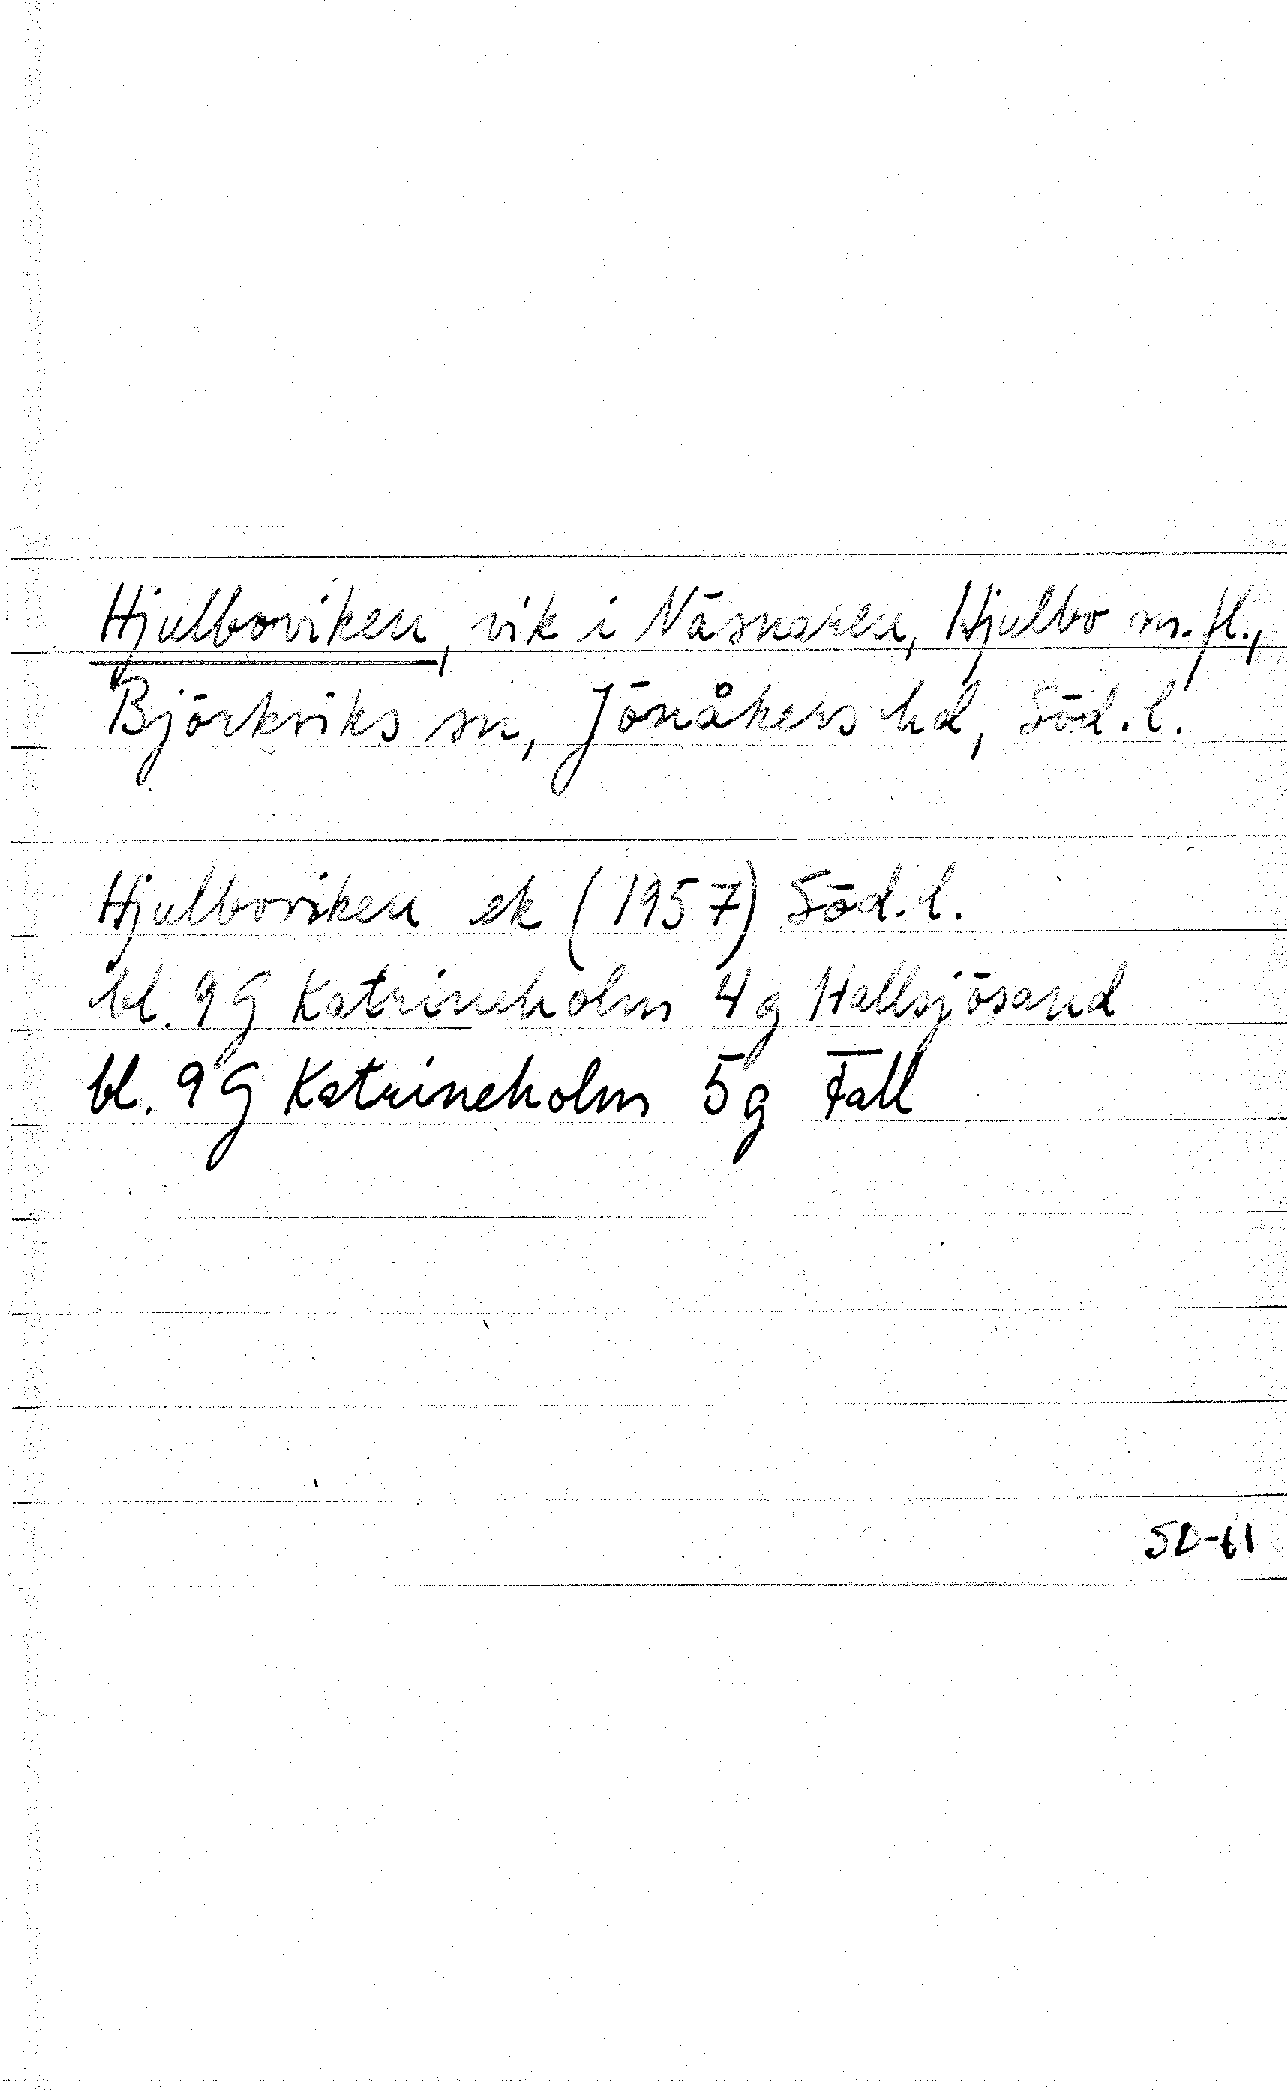 Hjulboviken, vik i Näsnaren, Hjulbo m.fl.,
Björkviks sn, Jönåkers hd, Söd.l.
Hjulboviken ek (1957) Söd.l.
bl. 9G Katrineholm 4g Hallsjösand
bl. 9G Katrineholm 5g Fall
SD-61